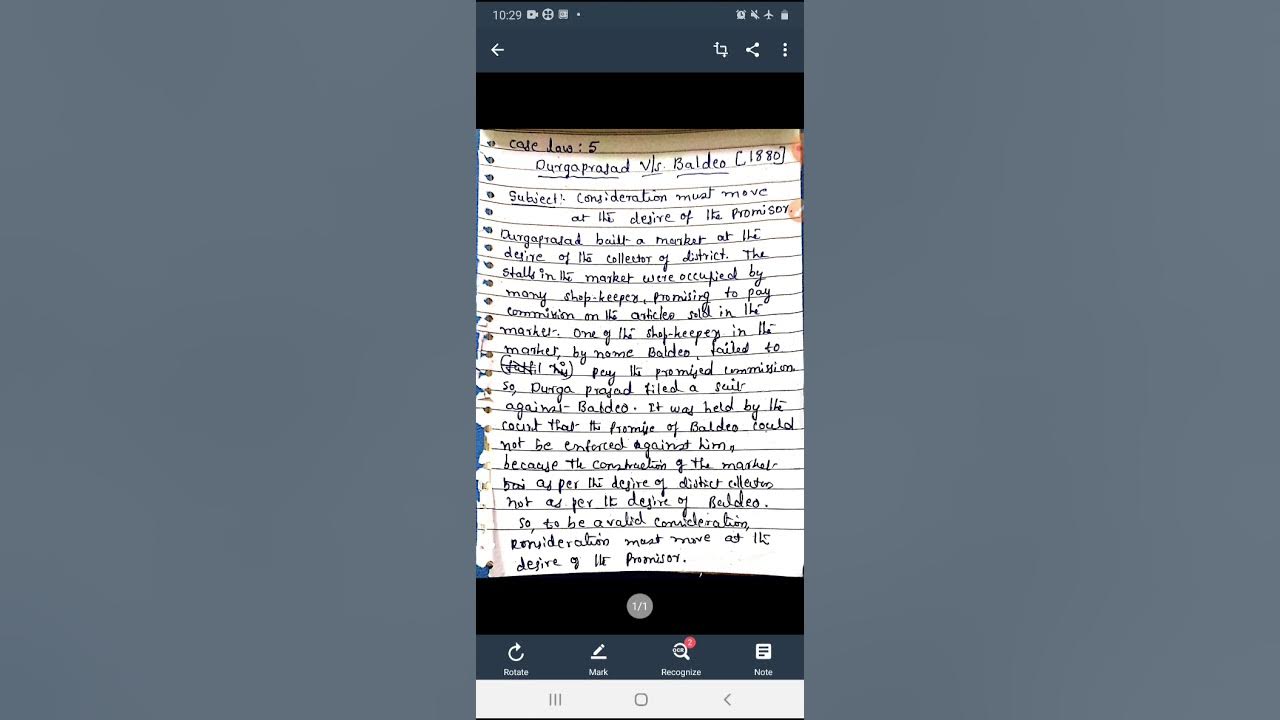 10:29
Case law: 5
Durgaprasad V/s. Baldeo [1880]
Subject:- Consideration must move
at the desire of the Promisor.
Durgaprasad built a market at the
desire of the collector of district. The
stalls in the market were occupied by
many shop-keepers, promising to pay
commission on the articles sold in the
market. One of the shop-keepers in the
market, by name Baldeo, failed to
pay the promised commission
So, Durga prasad filed a suit
against Baldeo. It was held by the
court that the Promise of Baldeo could
not be enforced against him,
because the construction of the market
as per the desire of district collector
not as per the desire of Baldeo.
So, to be a valid consideration,
consideration must move at the
desire of the Promisor.
1/1
OCR 2
Rotate Mark Recognize Note